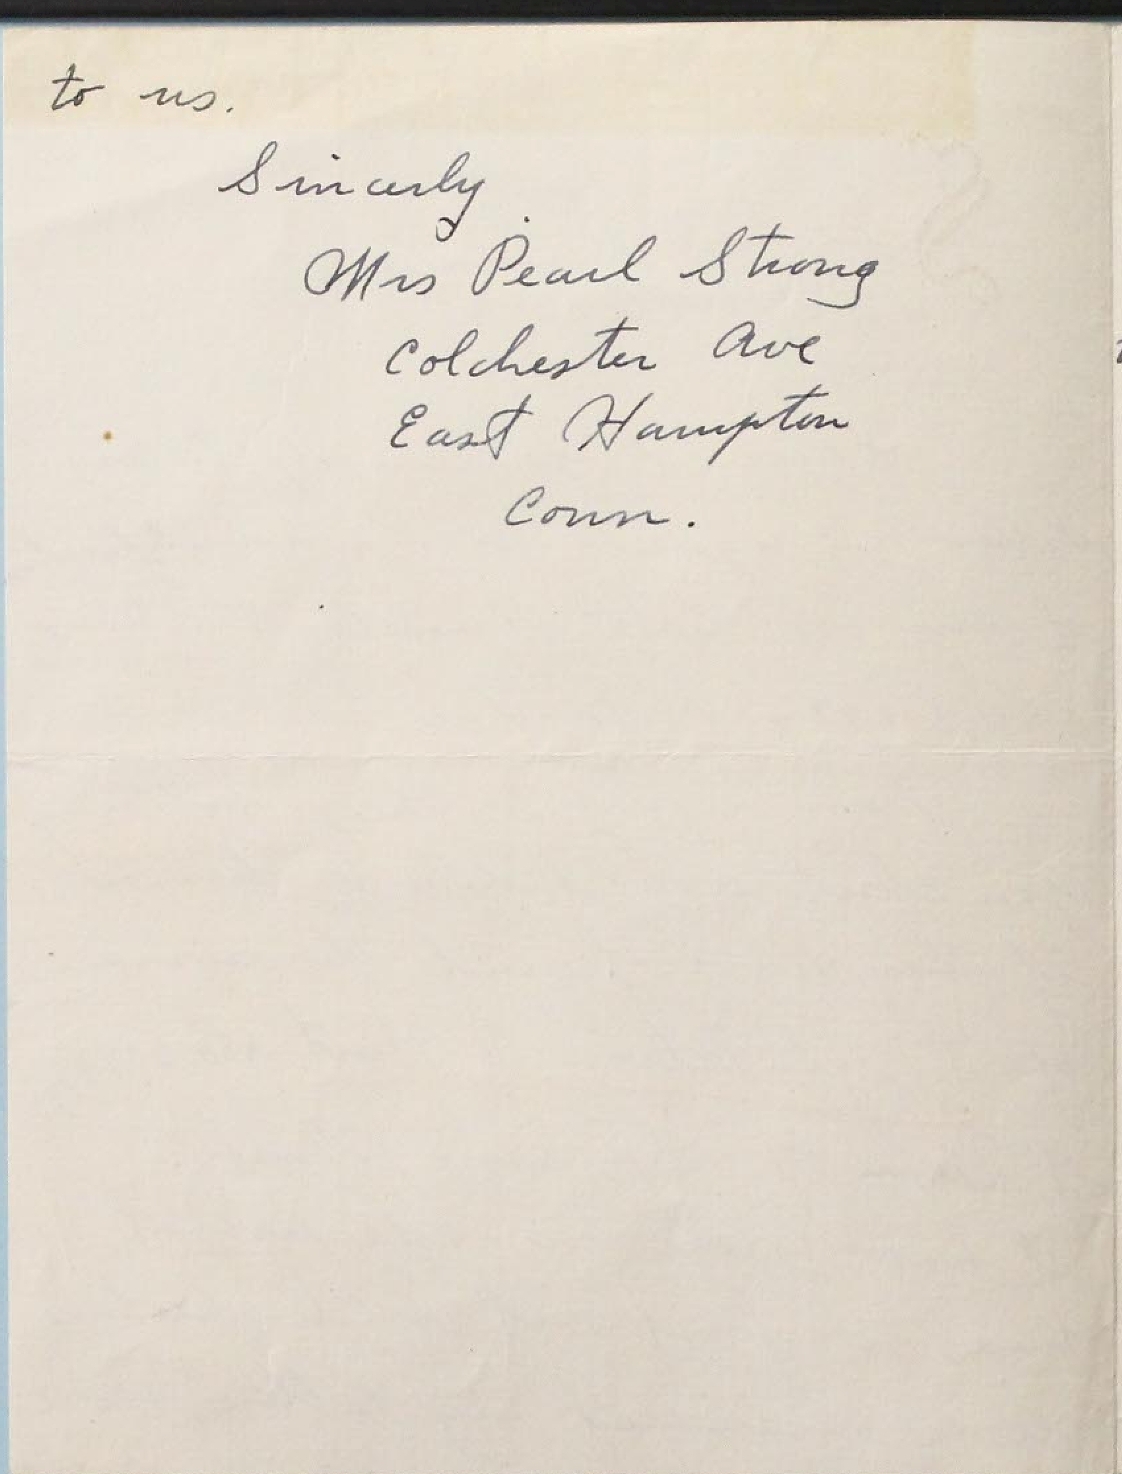 to us.
Sincerly
Mrs Pearl Strong
Colchester Ave
East Hampton
Conn.